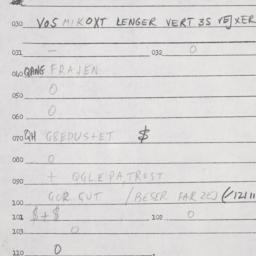 030 VOS MIKOXT LENGER VERT 3S VEJXER
031 — 032 0
040 QANG FRAJEN
050 0
060 0
070 QH GBEDUSTET $
080 0
090 + QGLEPATROST
100 GOR GUT /BESER FAR ZEJ (/1211
101 $+$ 102 0
103 0
110 0